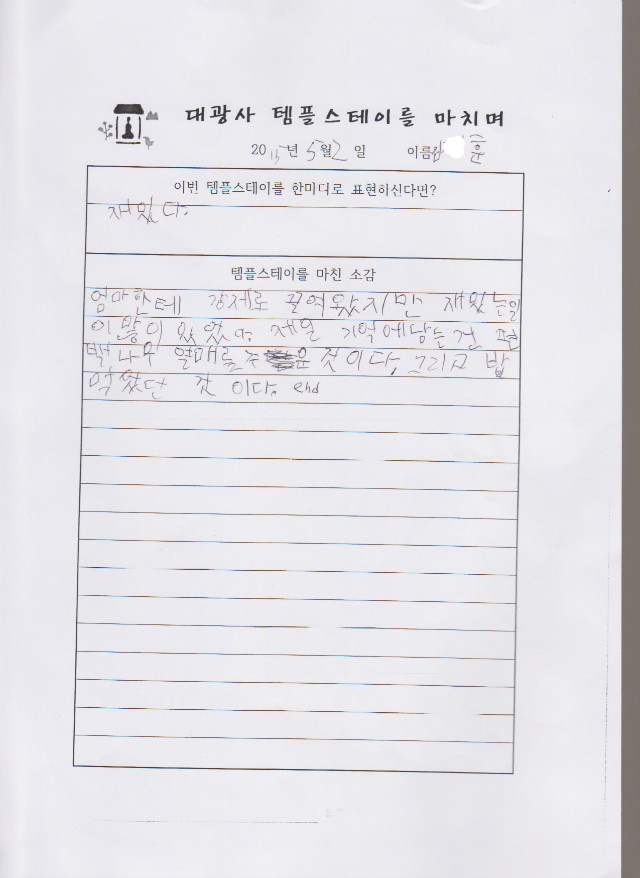 대광사 템플스테이를 마치며
2015년 5월 2일 이름 훈
이번 템플스테이를 한마디로 표현하신다면?
재밌다.
템플스테이를 마친 소감
엄마한테 강제로 끌여왔지만 재밌는일
이 많이 있었다. 제일 기억에남는건 편
백나무 열매를 주운것이다. 그리고 밥
먹었단 것이다. end